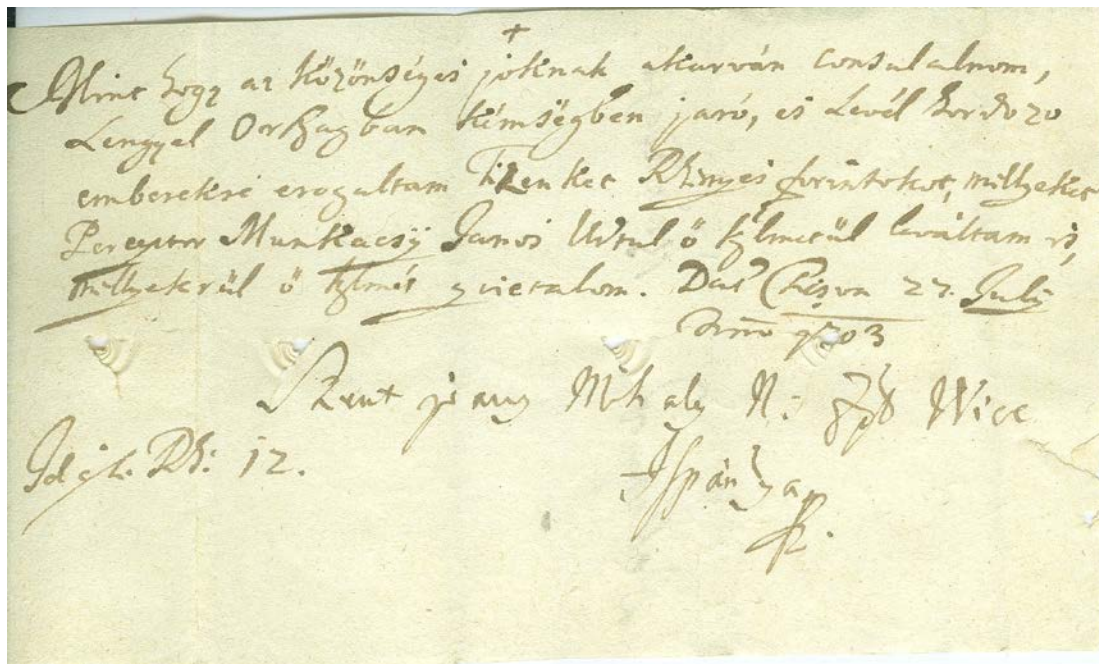 +
Mint hogy az közönséges joknak akarván consulalnom,
Lengyel Orszagban kémségben jaró, es Levél hordozo
emberekre erogaltam Tizenket Rhenyes forintokot, mellyeket
Perceptor Munkacsÿ Janos Urtul ő kglmetül leváltam is,
mellyekrül ő kglmét quietalom. Dat 27. Julÿ
Anno 1703
Szent Mihaly N: Vice
Ispánya
Id est. Rh: 12.